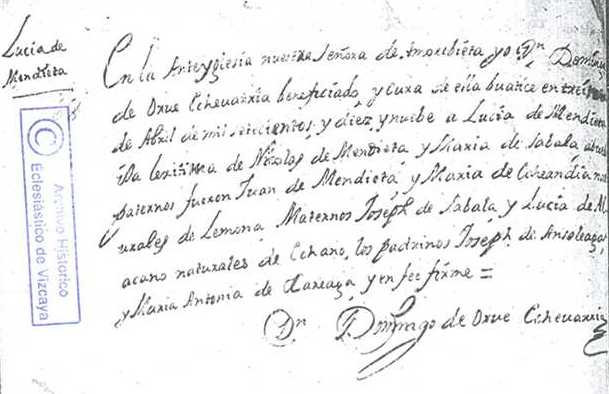 Lucia de
Mendieta
En la Anteyglesia nuestra Señora de Amorebieta yo Dn Doming
de Orue Echeuarria beneficiado y Cura de ella bautice en
de Abril de mil seicientos y diez y nuebe a Lucia de Mendieta
ija lexitima de Nicolas de Mendieta y Maria de Sabala abue
paternos fueron Juan de Mendieta y Maria de Echeandia nat
urales de Lemona Maternos Joseph de Sabala y Lucia de Al
acano naturales de Echano, los padrinos Joseph de Ansoleaga,
y Maria Antonia de Lareaga y en fee firme =
Dn Domingo de Orue Echeuarria
Archivo Historico
Eclesiástico de Vizcaya